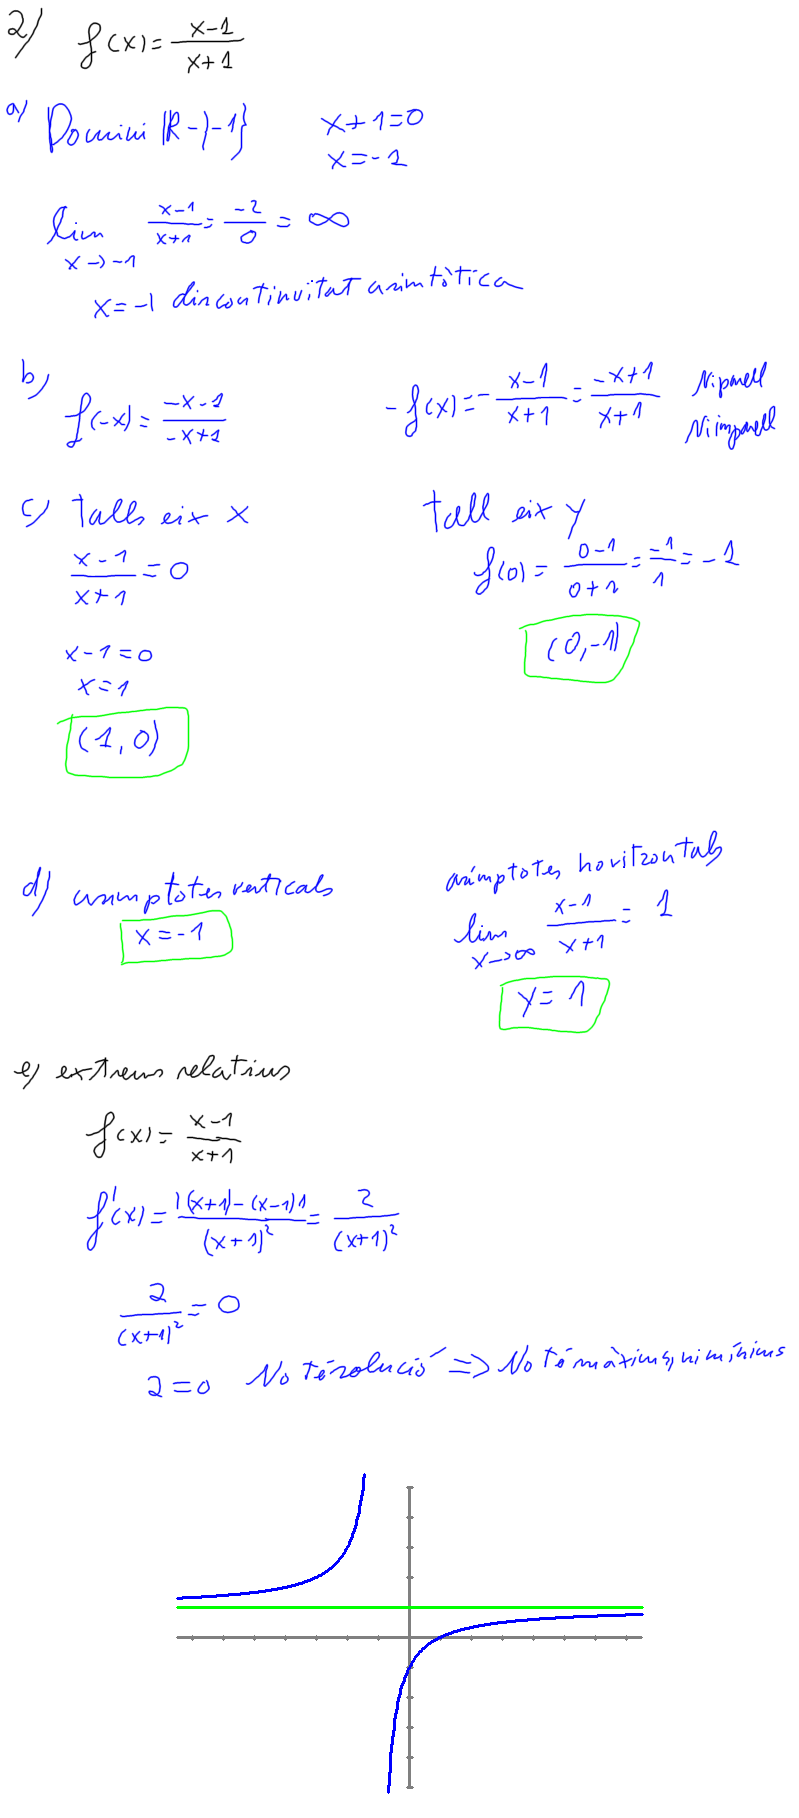 2) f(x) = (x-1)/(x+1)
a) Domini ℝ-{-1} x+1=0
x=-1
lim x→-1 (x-1)/(x+1) = -2/0 = ∞
x=-1 discontinuïtat asimtòtica
b) f(-x) = (-x-1)/(-x+1) -f(x) = -(x-1)/(x+1) = (-x+1)/(x+1) Ni parell
Ni imparell
c) Talls eix x tall eix y
(x-1)/(x+1) = 0 f(0) = (0-1)/(0+1) = -1/1 = -1
(0,-1)
x-1=0
x=1
(1,0)
d) asimptotes verticals asímptotes horitzontals
x=-1 lim x→∞ (x-1)/(x+1) = 1
y=1
e) extrems relatius
f(x) = (x-1)/(x+1)
f'(x) = (1(x+1)-(x-1)1)/(x+1)² = 2/(x+1)²
2/(x+1)² = 0
2=0 No té solució ⇒ No té màxims, ni mínims